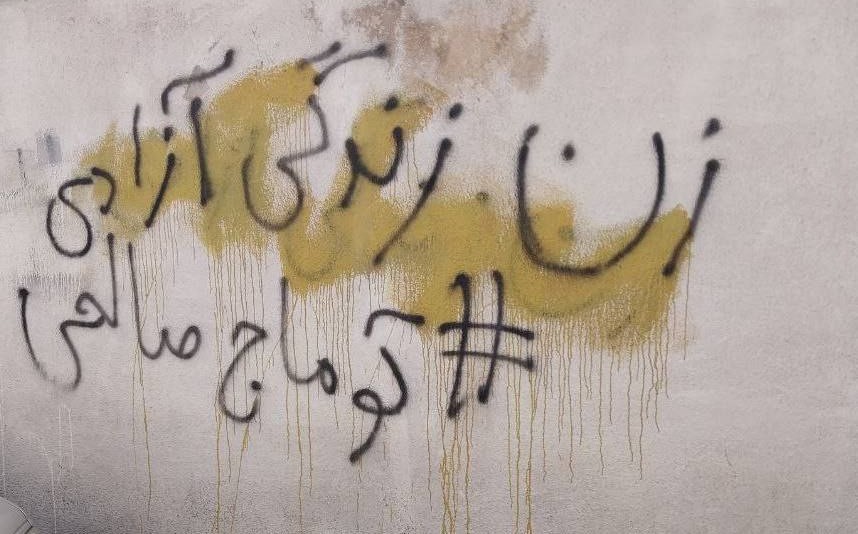 زن زندگی آزادی
#توماج صالحی